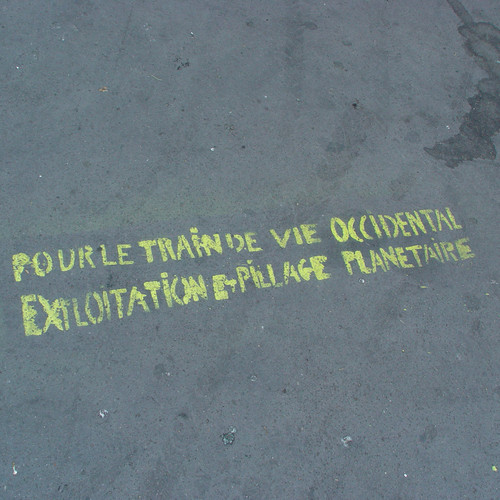 POUR LE TRAIN DE VIE OCCIDENTAL
EXPLOITATION ET PILLAGE PLANETAIRE